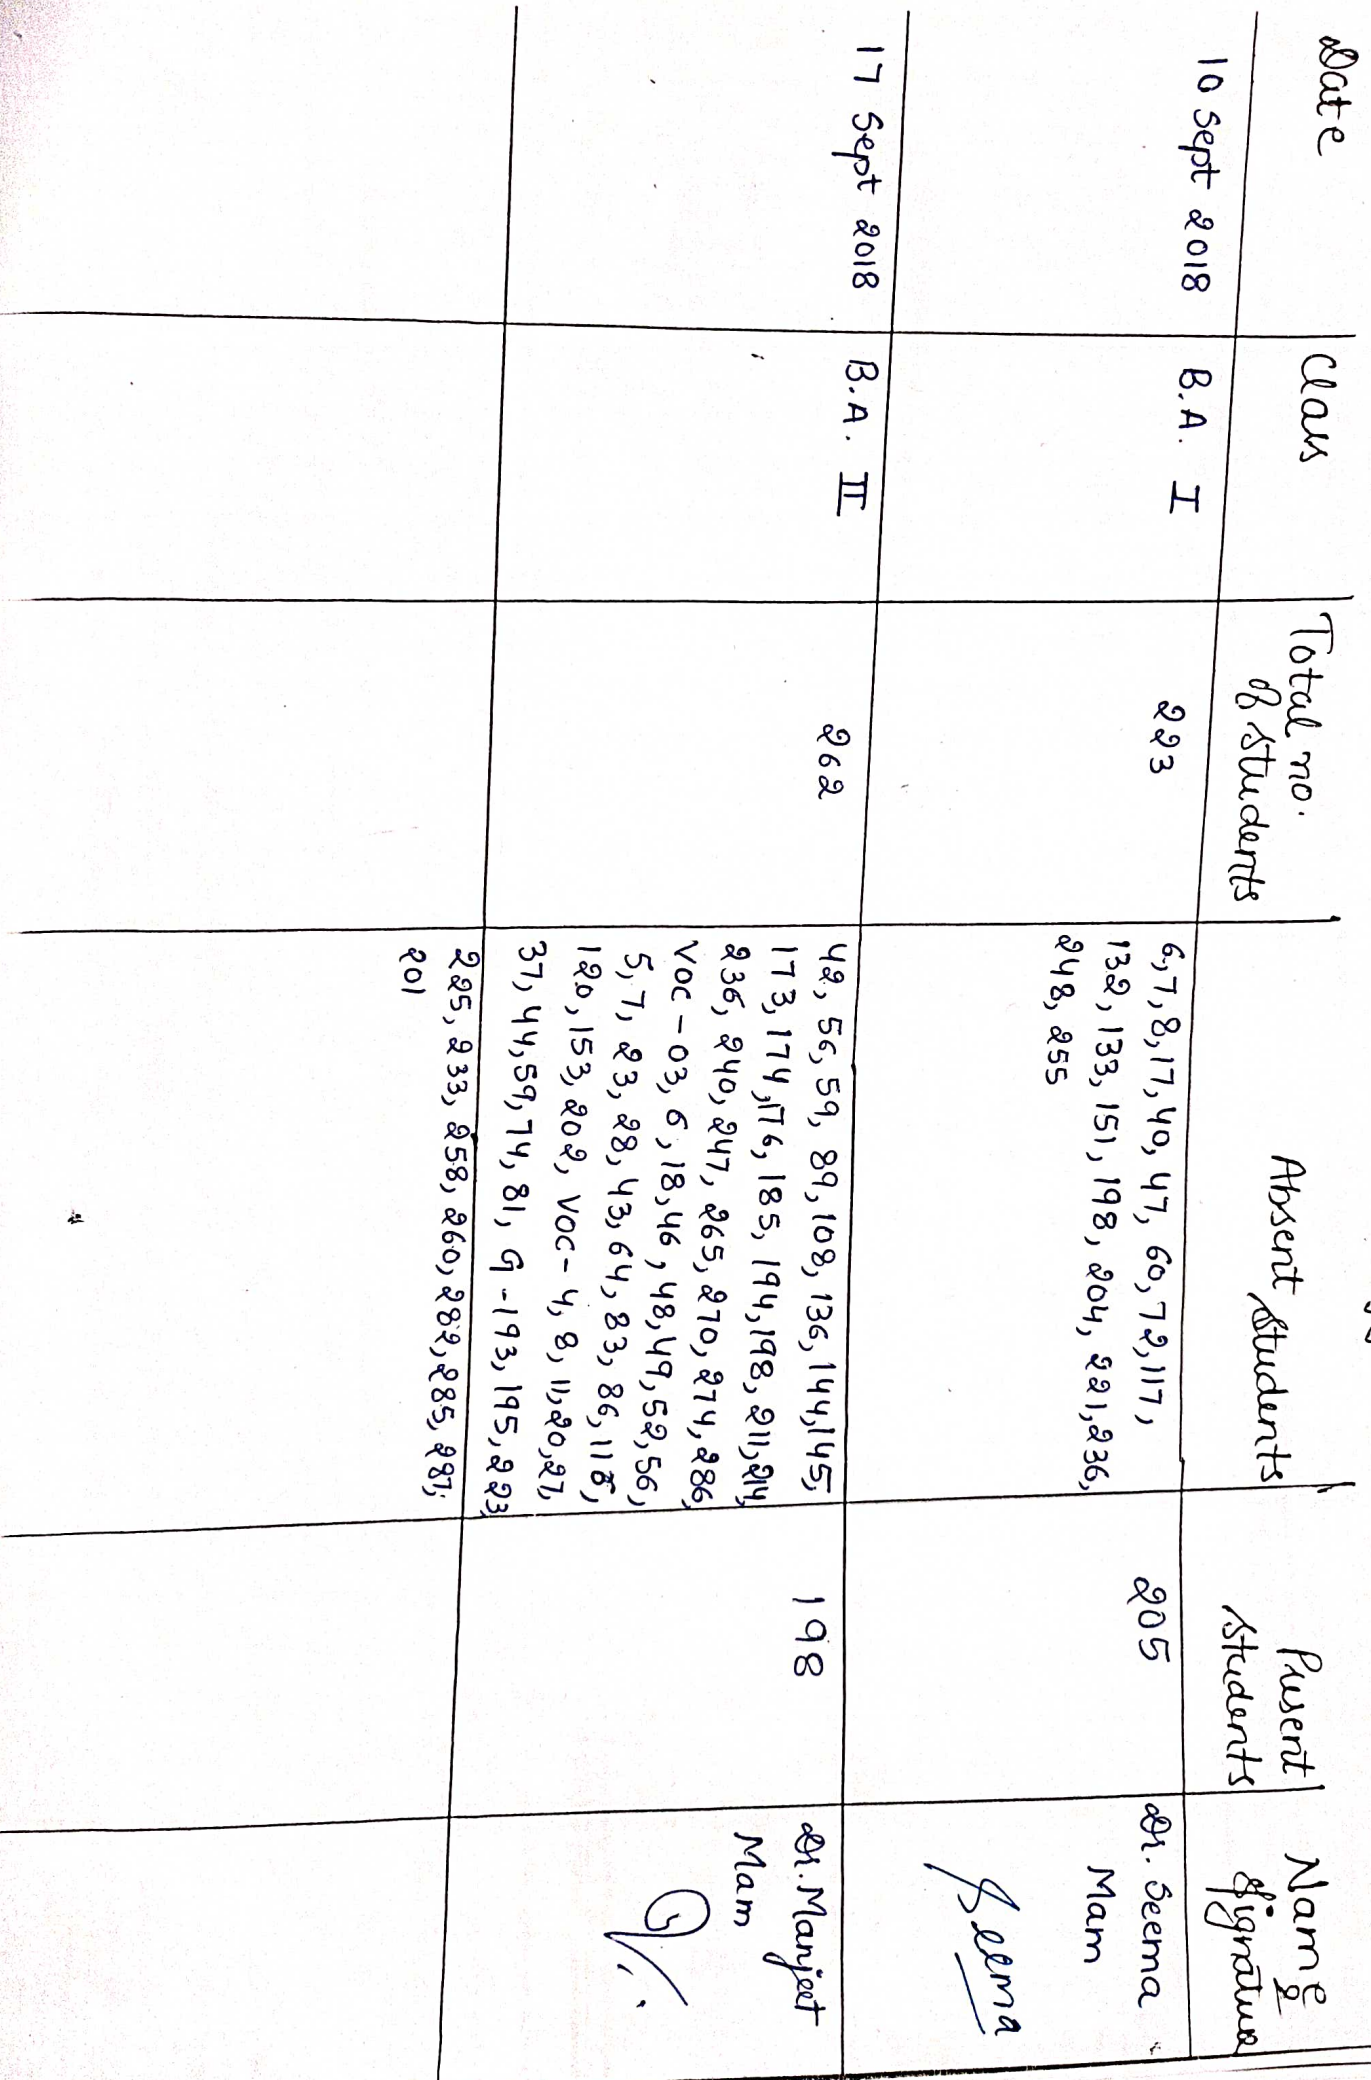 Date Class Total no. of students Absent students Present students Name & Signature
10 Sept 2018 B.A. I 223 6,7,8,17,40,47,60,72,117, 205 Dr. Seema
132,133,151,198,204,221,236, Mam
248,255
Seema
17 Sept 2018 B.A. II 262 42,56,59,89,108,136,144,145, 198 Dr. Manjeet
173,174,176,185,194,198,211,214, Mam
236,240,247,265,270,274,286,
VOC-03,6,18,46,48,49,52,56,
5,7,23,28,43,64,83,86,118,
120,153,202, VOC-4,8,11,20,27,
37,44,59,74,81, G-193,195,223,
225,233,258,260,282,285,287,
201